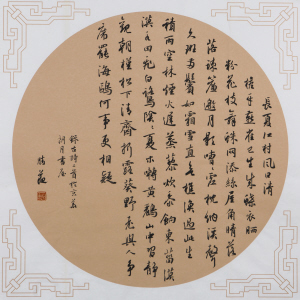 長夏江村風日清
檐牙燕雀已生成蝶衣晒
粉花枝舞蛛网添絲屋角晴落
落疎簾邀月影嘈嘈虚枕纳溪聲
久斑两鬢如霜雪直欲樵漁過此生
積雨空林煙火遲蒸藜炊黍餉東菑漠
漠水田飛白鷺陰陰夏木囀黄鸝山中習静
觀朝槿松下清齋折露葵野老與人爭
席罷海鷗何事更相疑
録古詩二首